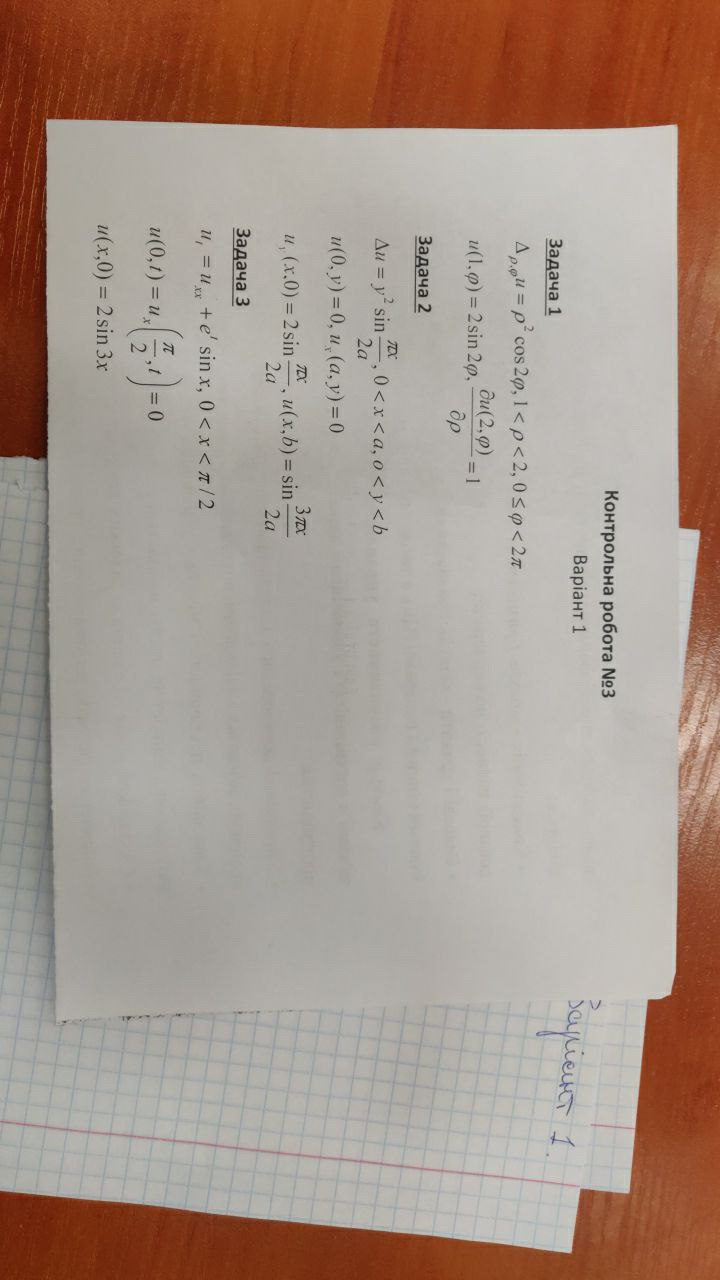 Контрольна робота №3
Варіант 1
Задача 1
Δ_{ρ,φ}u = ρ² cos 2φ, 1 < ρ < 2, 0 ≤ φ < 2π
u(1,φ) = 2 sin 2φ, ∂u(2,φ)/∂ρ = 1
Задача 2
Δu = y² sin πx/2a, 0 < x < a, o < y < b
u(0,y) = 0, u_x(a,y) = 0
u_y(x,0) = 2 sin πx/2a, u(x,b) = sin 3πx/2a
Задача 3
u_t = u_{xx} + e^t sin x, 0 < x < π/2
u(0,t) = u_x(π/2, t) = 0
u(x,0) = 2 sin 3x
Варіант 1.